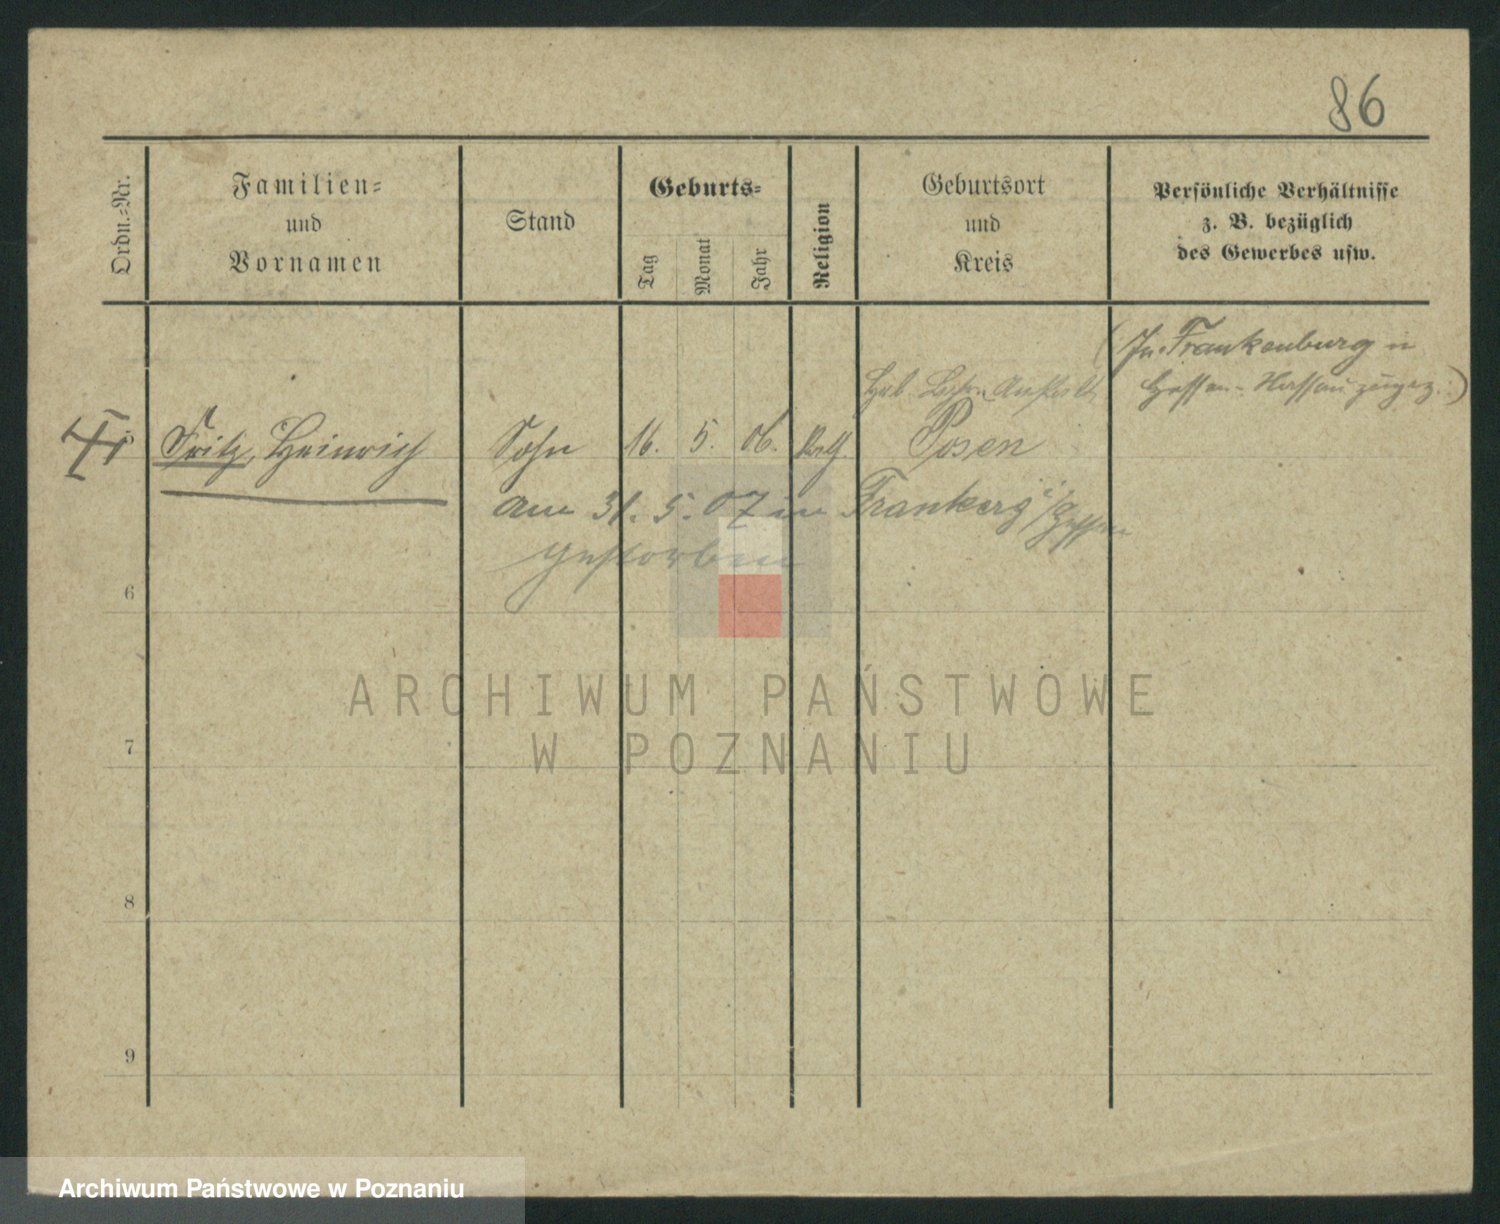 86
Ordn.-Nr.
Familien-
und
Vornamen
Stand
Geburts-
Tag
Monat
Jahr
Religion
Geburtsort
und
Kreis
Persönliche Verhältnisse
z. B. bezüglich
des Gewerbes usw.
(In Frankenburg in
Hessen-Nassau zugez.)
5 Fritz, Heinrich Sohn 16. 5. 06. Posen
am 31. 5. 07 in
gestorben
6
7
8
9
ARCHIWUM PAŃSTWOWE
W POZNANIU
Archiwum Państwowe w Poznaniu